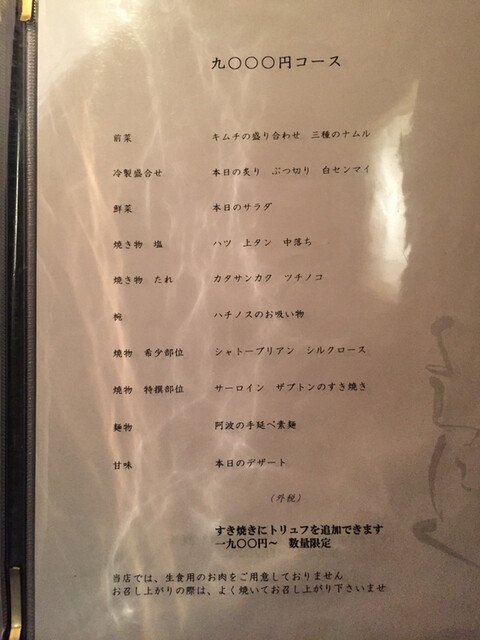 九〇〇〇円コース
前菜 キムチの盛り合わせ 三種のナムル
冷製盛合せ 本日の炙り ぶつ切り 白センマイ
鮮菜 本日のサラダ
焼き物 塩 ハツ 上タン 中落ち
焼き物 たれ カタサンカク ツチノコ
椀 ハチノスのお吸い物
焼物 希少部位 シャトーブリアン シルクロース
焼物 特撰部位 サーロイン ザブトンのすき焼き
麺物 阿波の手延べ素麺
甘味 本日のデザート
(外税)
すき焼きにトリュフを追加できます
一九〇〇円~ 数量限定
当店では、生食用のお肉をご用意しておりません
お召し上がりの際は、よく焼いてお召し上がり下さいませ